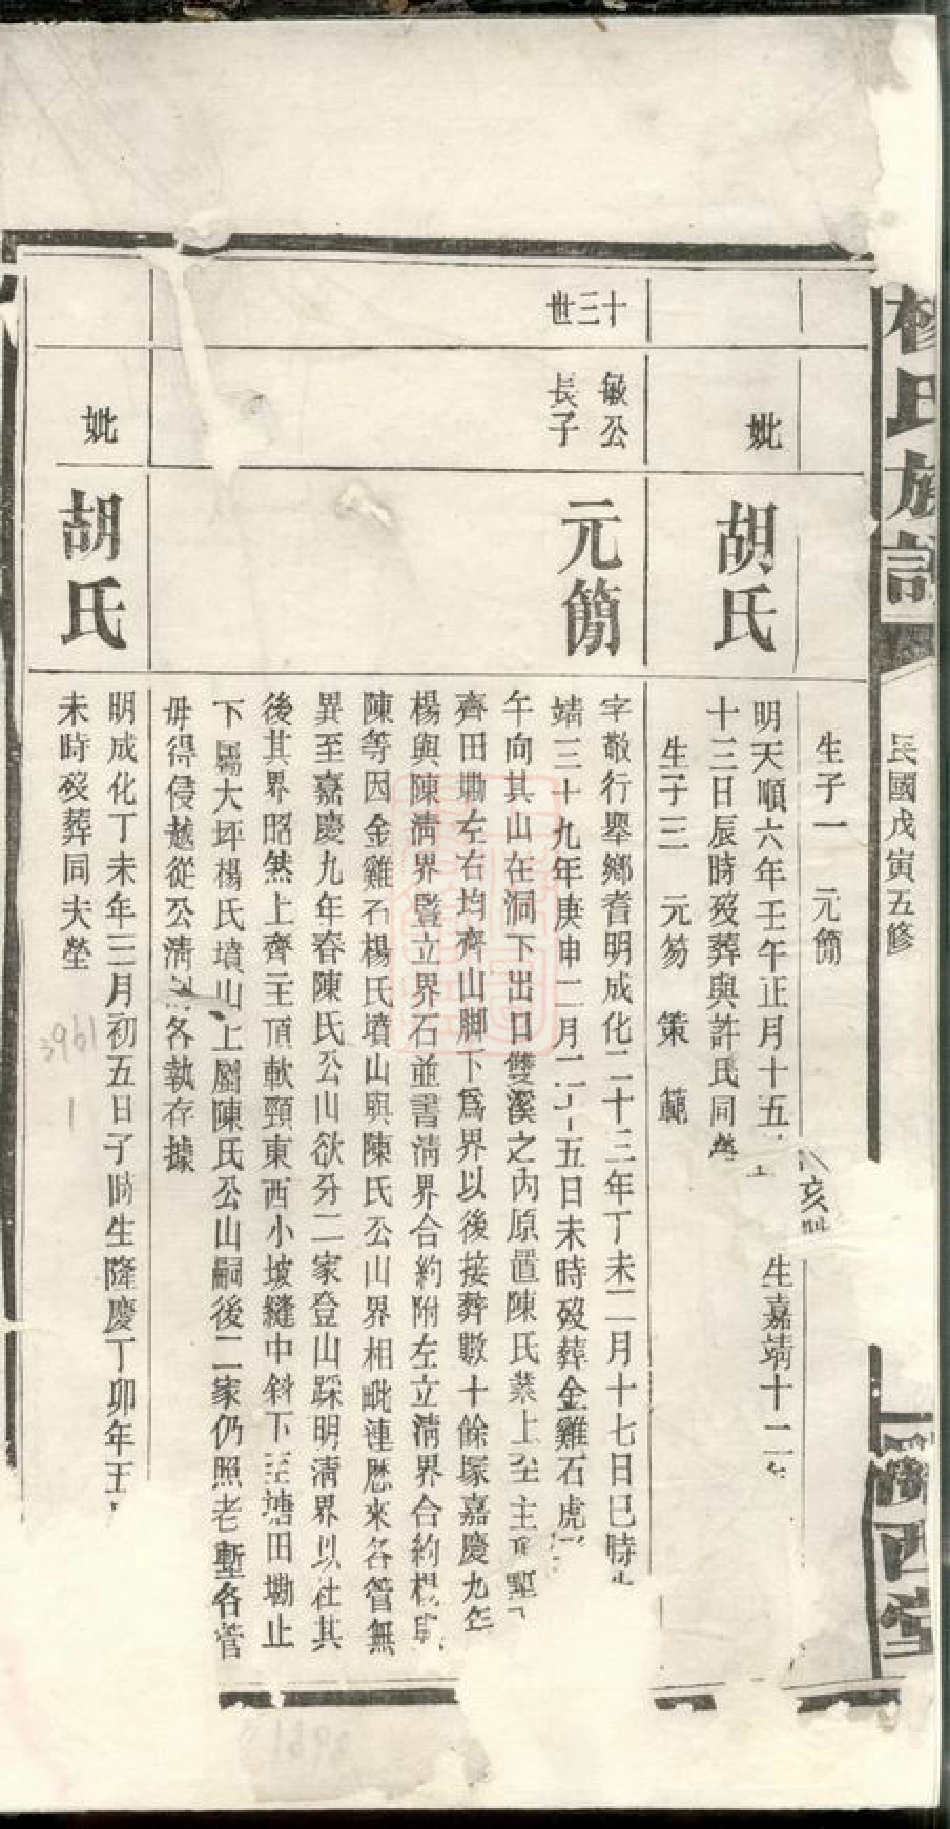 楊氏族譜
民國戊寅五修
關西堂
生子一 元簡
亥
妣
胡氏
明天順六年壬午正月十五
生嘉靖十二年
十三日辰時歿葬與許氏同塋
生子三 元笏 策 範
十三世
敏公
長子
元簡
字敬行舉鄉耆明成化二十三年丁未二月十七日巳時
靖三十九年庚申二月二十五日未時歿葬金雞石虎
午向其山在洞下出日雙溪之內原置陳氏業上至主頂
齊田墈左右均齊山脚下為界以後接葬數十餘塚嘉慶九年
楊與陳清界豎立界石並書清界合約附左立清界合約楊
陳等因金雞石楊氏墳山與陳氏公山界相毗連歷來各管無
異至嘉慶九年春陳氏公山欲分二家登山踩明清界以杜其
後其界昭然上齊主頂軟頸東西小坡縫中斜下至塘田墈止
下屬大坪楊氏墳山上屬陳氏公山嗣後二家仍照老塹各管
毋得侵越從公清各執存據
妣
胡氏
明成化丁未年三月初五日子時生隆慶丁卯年壬
未時歿葬同夫塋
3961
1